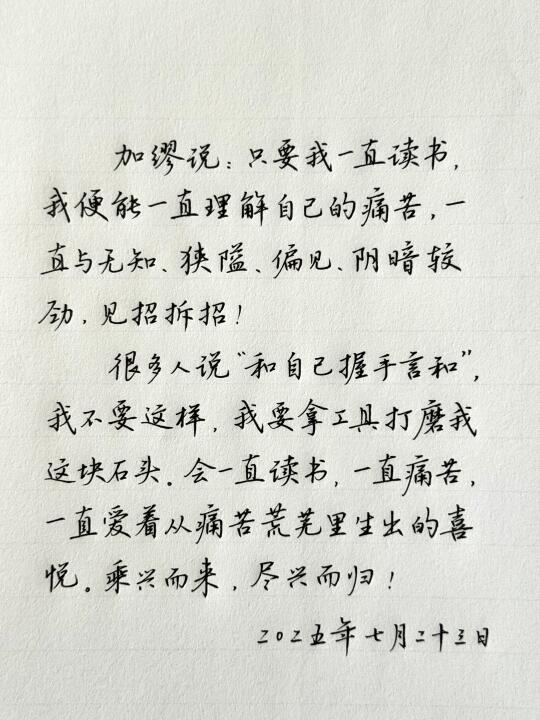 加缪说：只要我一直读书，
我便能一直理解自己的痛苦，一
直与无知、狭隘、偏见、阴暗较
劲，见招拆招！
很多人说“和自己握手言和”，
我不要这样，我要拿工具打磨我
这块石头。会一直读书，一直痛苦，
一直爱着从痛苦荒芜里生出的喜
悦。乘兴而来，尽兴而归！
二〇二五年七月二十三日